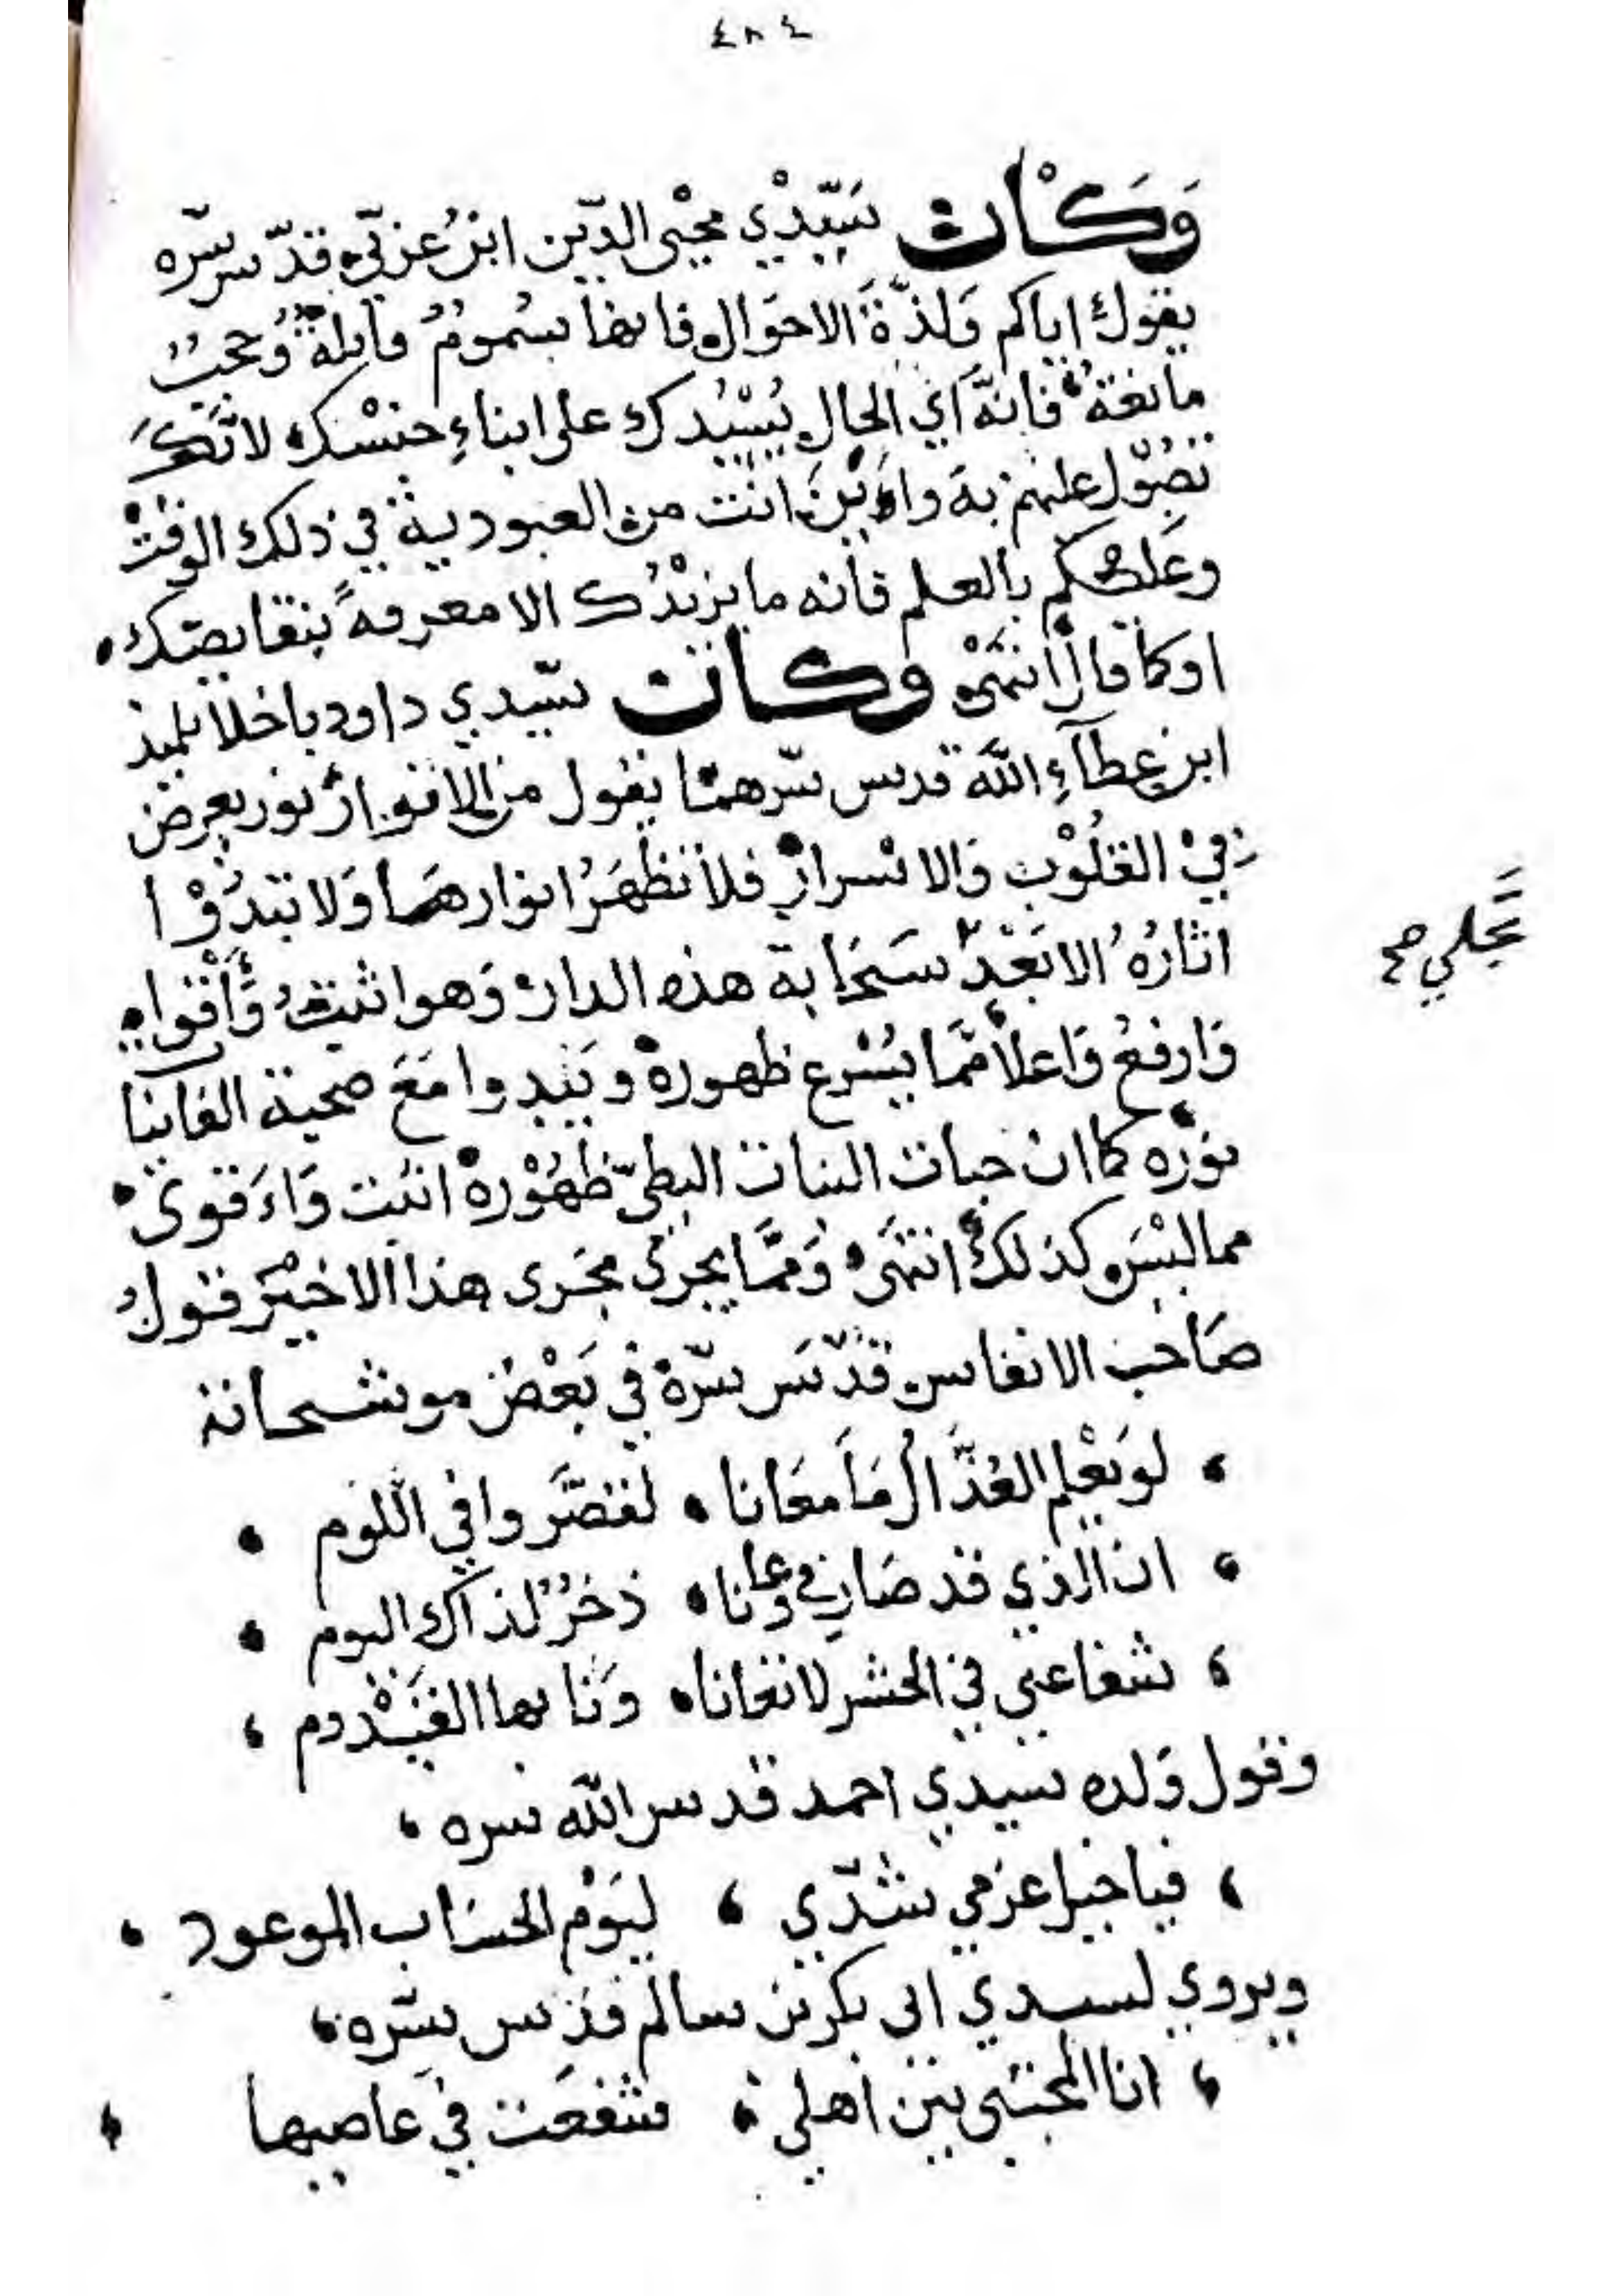 ٤٨٤
وَكَان سَيّدْي محْيى الدّين ابنُ عربي قدّس سّره
يقول اياكم وَلذّةَ الاحوَال فانها سُمومُ قاتلةٌ وُحجبٌ
مانعةٌ فانهَّ اي الحال يُسْيُدك على ابناءِ جنسْك لانَّكَ
تصُوّل عليهم به واَيْنَ انْت من العبودية في ذلك الوقتْ
وعَليكم بالعلم فانه ما يزيْدُك الا معرفةً بنقايصك
او كما قال انتهَىْ وَكان سّيدي داود باخلا تلميذ
ابن عطآءِ اللَّه قدس سّرهمَا يقول من الانوار نور يعرض
فيْ القلُوْب وَالاسْرار فلا تظهَرُ انوارهَا وَلا تبْدُوْا
اثارُهُ الا بَعْدَ سَحَابة هذه الدار وَهو اثبتُ وَأقْوا
وَارفعُ وَاعلا ممَّا يُسْرع ظهوره ويَبْدوا مَعَ صحبة الفاينا
نوْره كما ان حبات النبات البطيّ ظهُوْرهْ انبَت وَاَقوى
مما ليْسَ كذلك انتهَىْ وَممَّا يجري مجَرى هذا الاخيْر قول
صَاحب الانفاس قدّسَ سّرهْ في بَعْض موشحاته
لو يَعْلم العُذَّال مَا معَانا لقصَّروا في اللوم
ان الذي قد صَار في وعانا ذخرُ لذاك اليوم
شفاعتي في الحشر لا تفانا وَنا بها القيْدوم
وقول وَلده سيدي احمد قدس اللّه سره
فيا خيل عزمي شدّي ليَوْم الحسَاب الموعود
ويروي لسيدي ابي بكر بن سالم قدس سّره
انا المجتبى بين اهلي شفعَت في عاصيها
تجَلي صح